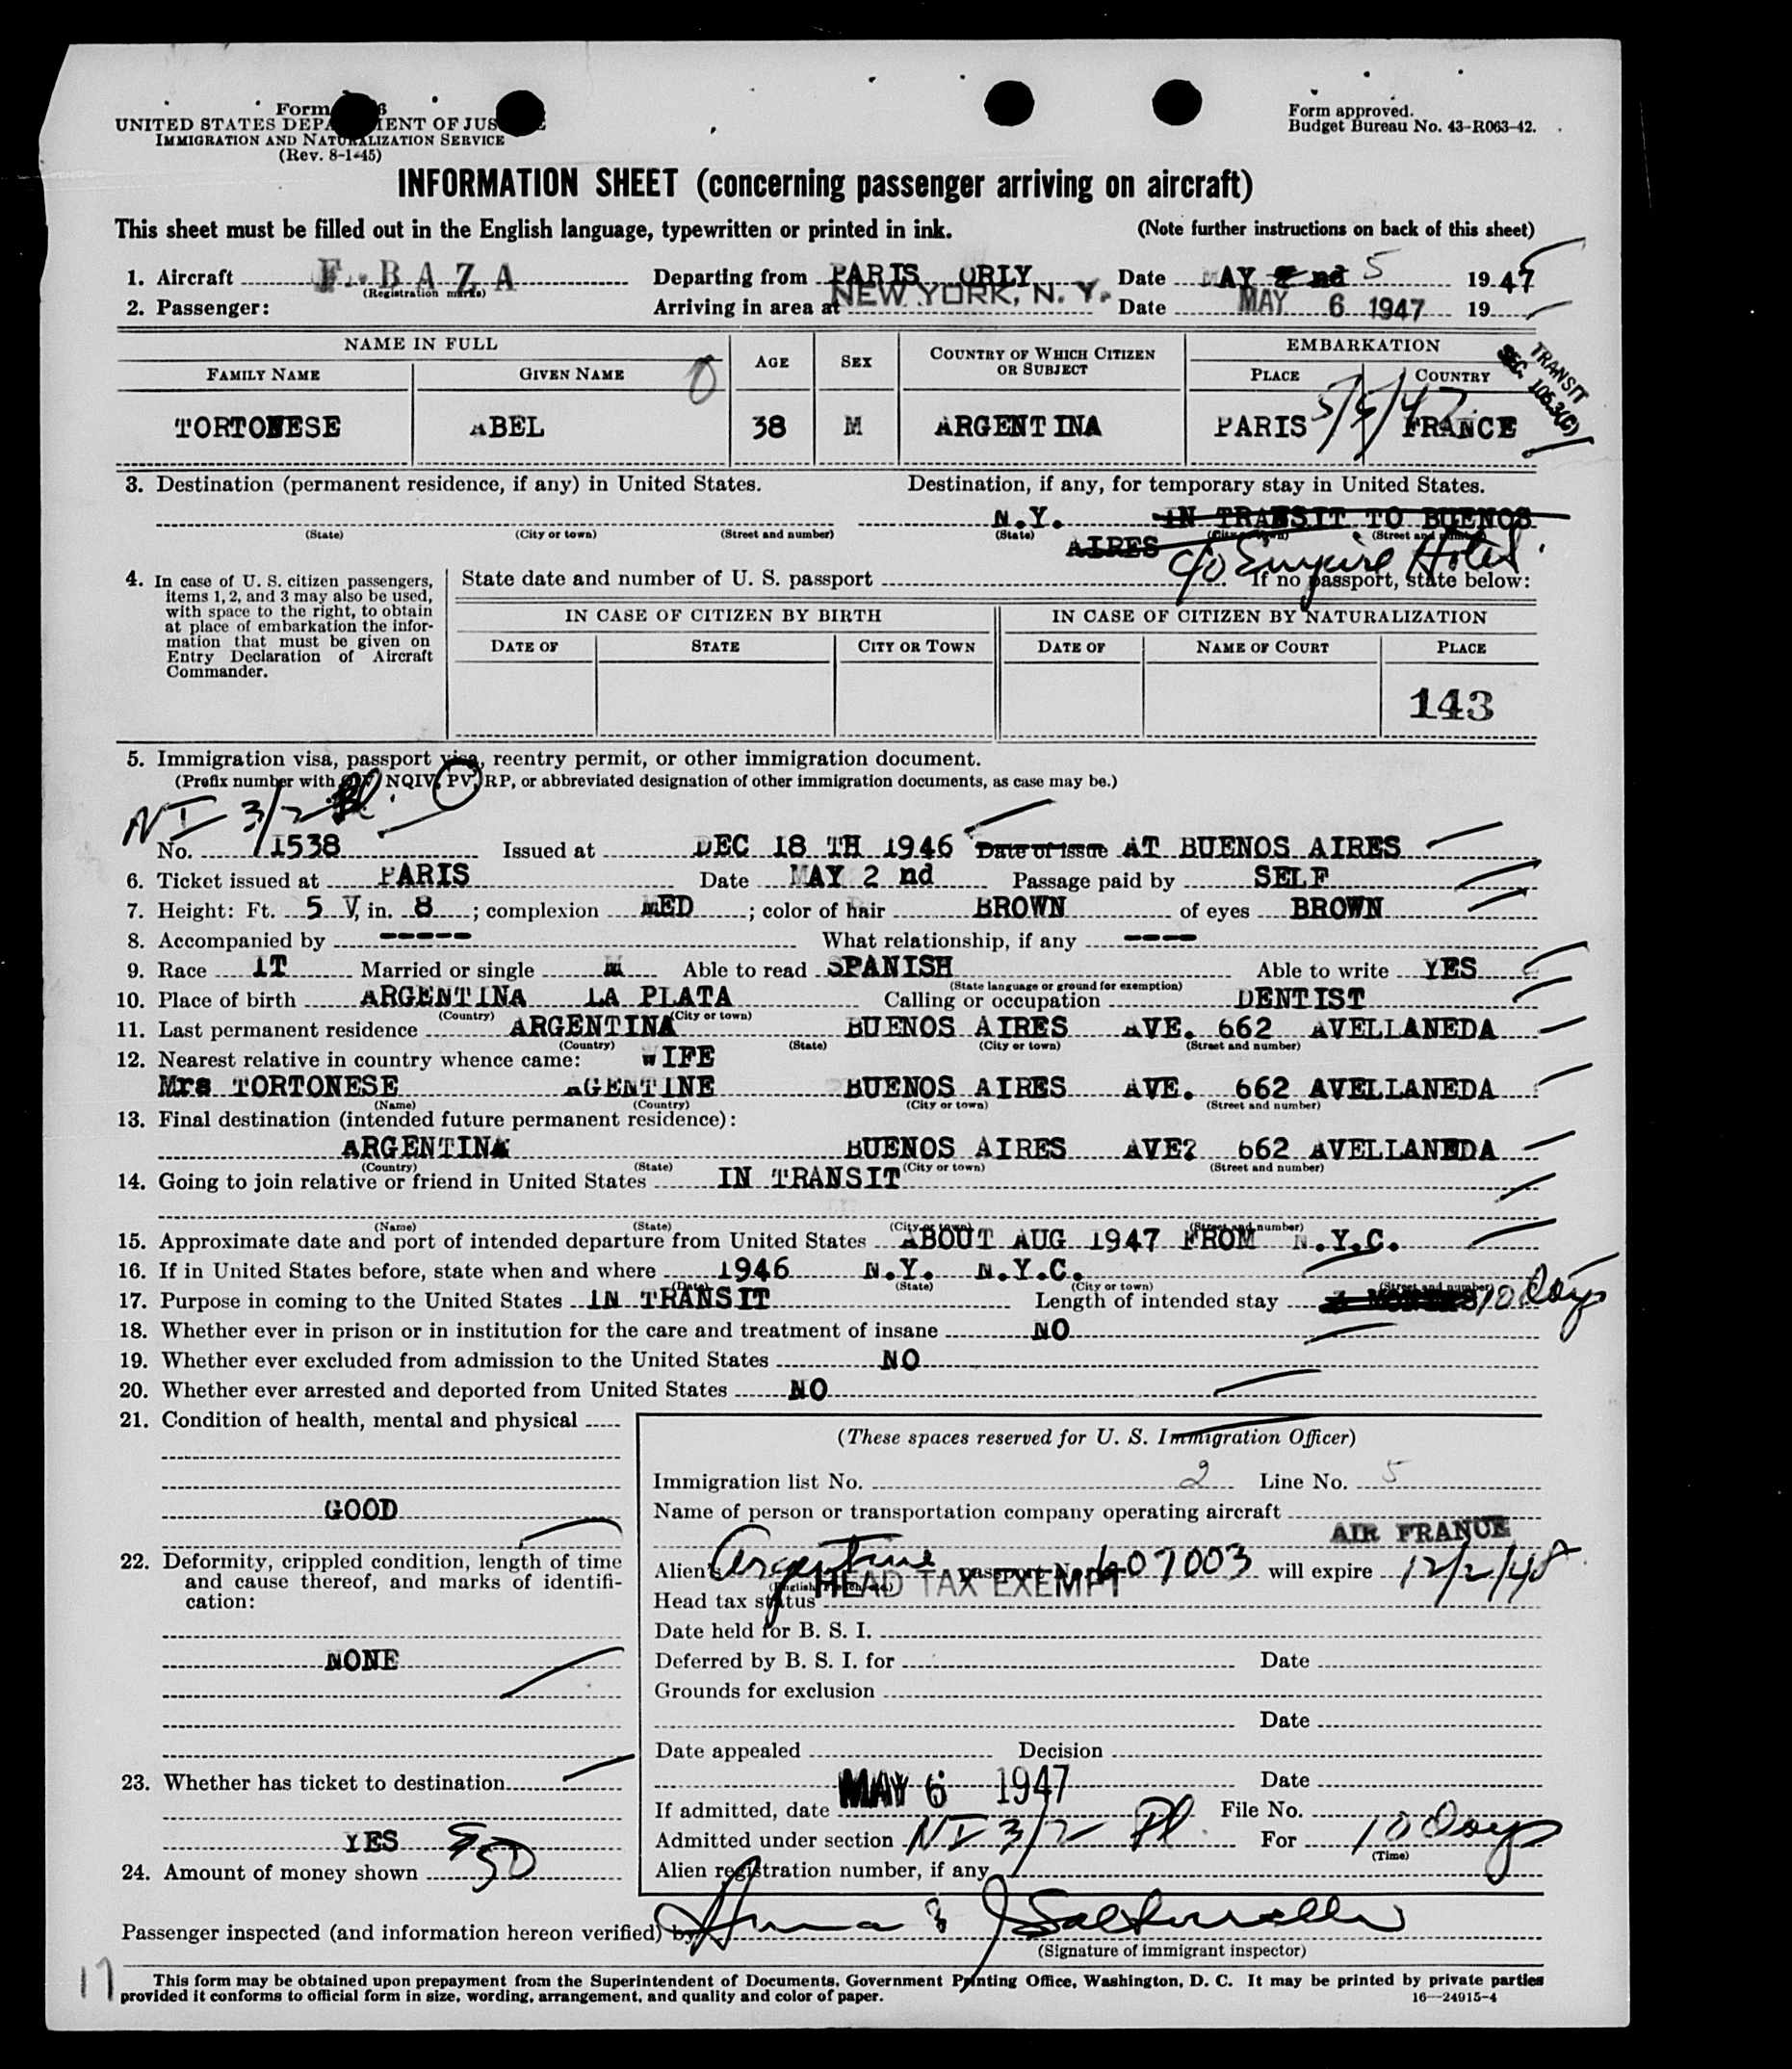 Form
UNITED STATES DEPARTMENT OF JUSTICE
IMMIGRATION AND NATURALIZATION SERVICE
(Rev. 8-1-45)
Form approved.
Budget Bureau No. 43-R063-42.
INFORMATION SHEET (concerning passenger arriving on aircraft)
This sheet must be filled out in the English language, typewritten or printed in ink. (Note further instructions on back of this sheet)
1. Aircraft F-BAZA Departing from PARIS ORLY Date MAY 2 nd 5 1947
(Registration marks)
2. Passenger: Arriving in area at NEW YORK, N. Y. Date MAY 6 1947 19
NAME IN FULL AGE SEX COUNTRY OF WHICH CITIZEN OR SUBJECT EMBARKATION
FAMILY NAME GIVEN NAME PLACE COUNTRY
TRANSIT
SEC. 106.3(G)
TORTONESE ABEL 38 M ARGENTINA PARIS 5/5/47 FRANCE
3. Destination (permanent residence, if any) in United States. Destination, if any, for temporary stay in United States.
N.Y. IN TRANSIT TO BUENOS
(State) (City or town) (Street and number) (State) (City or town) (Street and number)
AIRES c/o Empire Hotel
4. In case of U. S. citizen passengers, items 1, 2, and 3 may also be used, with space to the right, to obtain at place of embarkation the information that must be given on Entry Declaration of Aircraft Commander.
State date and number of U. S. passport If no passport, state below:
IN CASE OF CITIZEN BY BIRTH IN CASE OF CITIZEN BY NATURALIZATION
DATE OF STATE CITY OR TOWN DATE OF NAME OF COURT PLACE
143
5. Immigration visa, passport visa, reentry permit, or other immigration document.
(Prefix number with NQIV, PV, RP, or abbreviated designation of other immigration documents, as case may be.)
NI 3/2 Pl.
No. 1538 Issued at DEC 18 TH 1946 Date of issue AT BUENOS AIRES
6. Ticket issued at PARIS Date MAY 2 nd Passage paid by SELF
7. Height: Ft. 5 in. 8; complexion MED; color of hair BROWN of eyes BROWN
8. Accompanied by ----- What relationship, if any ----
9. Race IT Married or single M Able to read SPANISH Able to write YES
(State language or ground for exemption)
10. Place of birth ARGENTINA LA PLATA Calling or occupation DENTIST
(Country) (City or town)
11. Last permanent residence ARGENTINA BUENOS AIRES AVE. 662 AVELLANEDA
(Country) (State) (City or town) (Street and number)
12. Nearest relative in country whence came: WIFE
Mrs TORTONESE AGENTINE BUENOS AIRES AVE. 662 AVELLANEDA
(Name) (Country) (City or town) (Street and number)
13. Final destination (intended future permanent residence):
ARGENTINA BUENOS AIRES AVE? 662 AVELLANEDA
(Country) (State) (City or town) (Street and number)
14. Going to join relative or friend in United States IN TRANSIT
(Name) (State) (City or town) (Street and number)
15. Approximate date and port of intended departure from United States ABOUT AUG 1947 FROM N.Y.C.
16. If in United States before, state when and where 1946 N.Y. N.Y.C.
(Date) (State) (City or town) (Street and number)
17. Purpose in coming to the United States IN TRANSIT Length of intended stay 10 Days
18. Whether ever in prison or in institution for the care and treatment of insane NO
19. Whether ever excluded from admission to the United States NO
20. Whether ever arrested and deported from United States NO
21. Condition of health, mental and physical
GOOD
22. Deformity, crippled condition, length of time and cause thereof, and marks of identification:
NONE
23. Whether has ticket to destination
YES
24. Amount of money shown 50
(These spaces reserved for U. S. Immigration Officer)
Immigration list No. 2 Line No. 5
Name of person or transportation company operating aircraft
AIR FRANCE
Alien's Argentine passport No. 607003 will expire 12/2/48
(English, French, etc.)
Head tax status HEAD TAX EXEMPT
Date held for B. S. I.
Deferred by B. S. I. for Date
Grounds for exclusion
Date
Date appealed Decision
Date
If admitted, date MAY 6 1947 File No.
Admitted under section NI 3/2 Pl. For 10 Days
(Time)
Alien registration number, if any
Passenger inspected (and information hereon verified) by
(Signature of immigrant inspector)
17
This form may be obtained upon prepayment from the Superintendent of Documents, Government Printing Office, Washington, D. C. It may be printed by private parties
provided it conforms to official form in size, wording, arrangement, and quality and color of paper. 16—24915-4